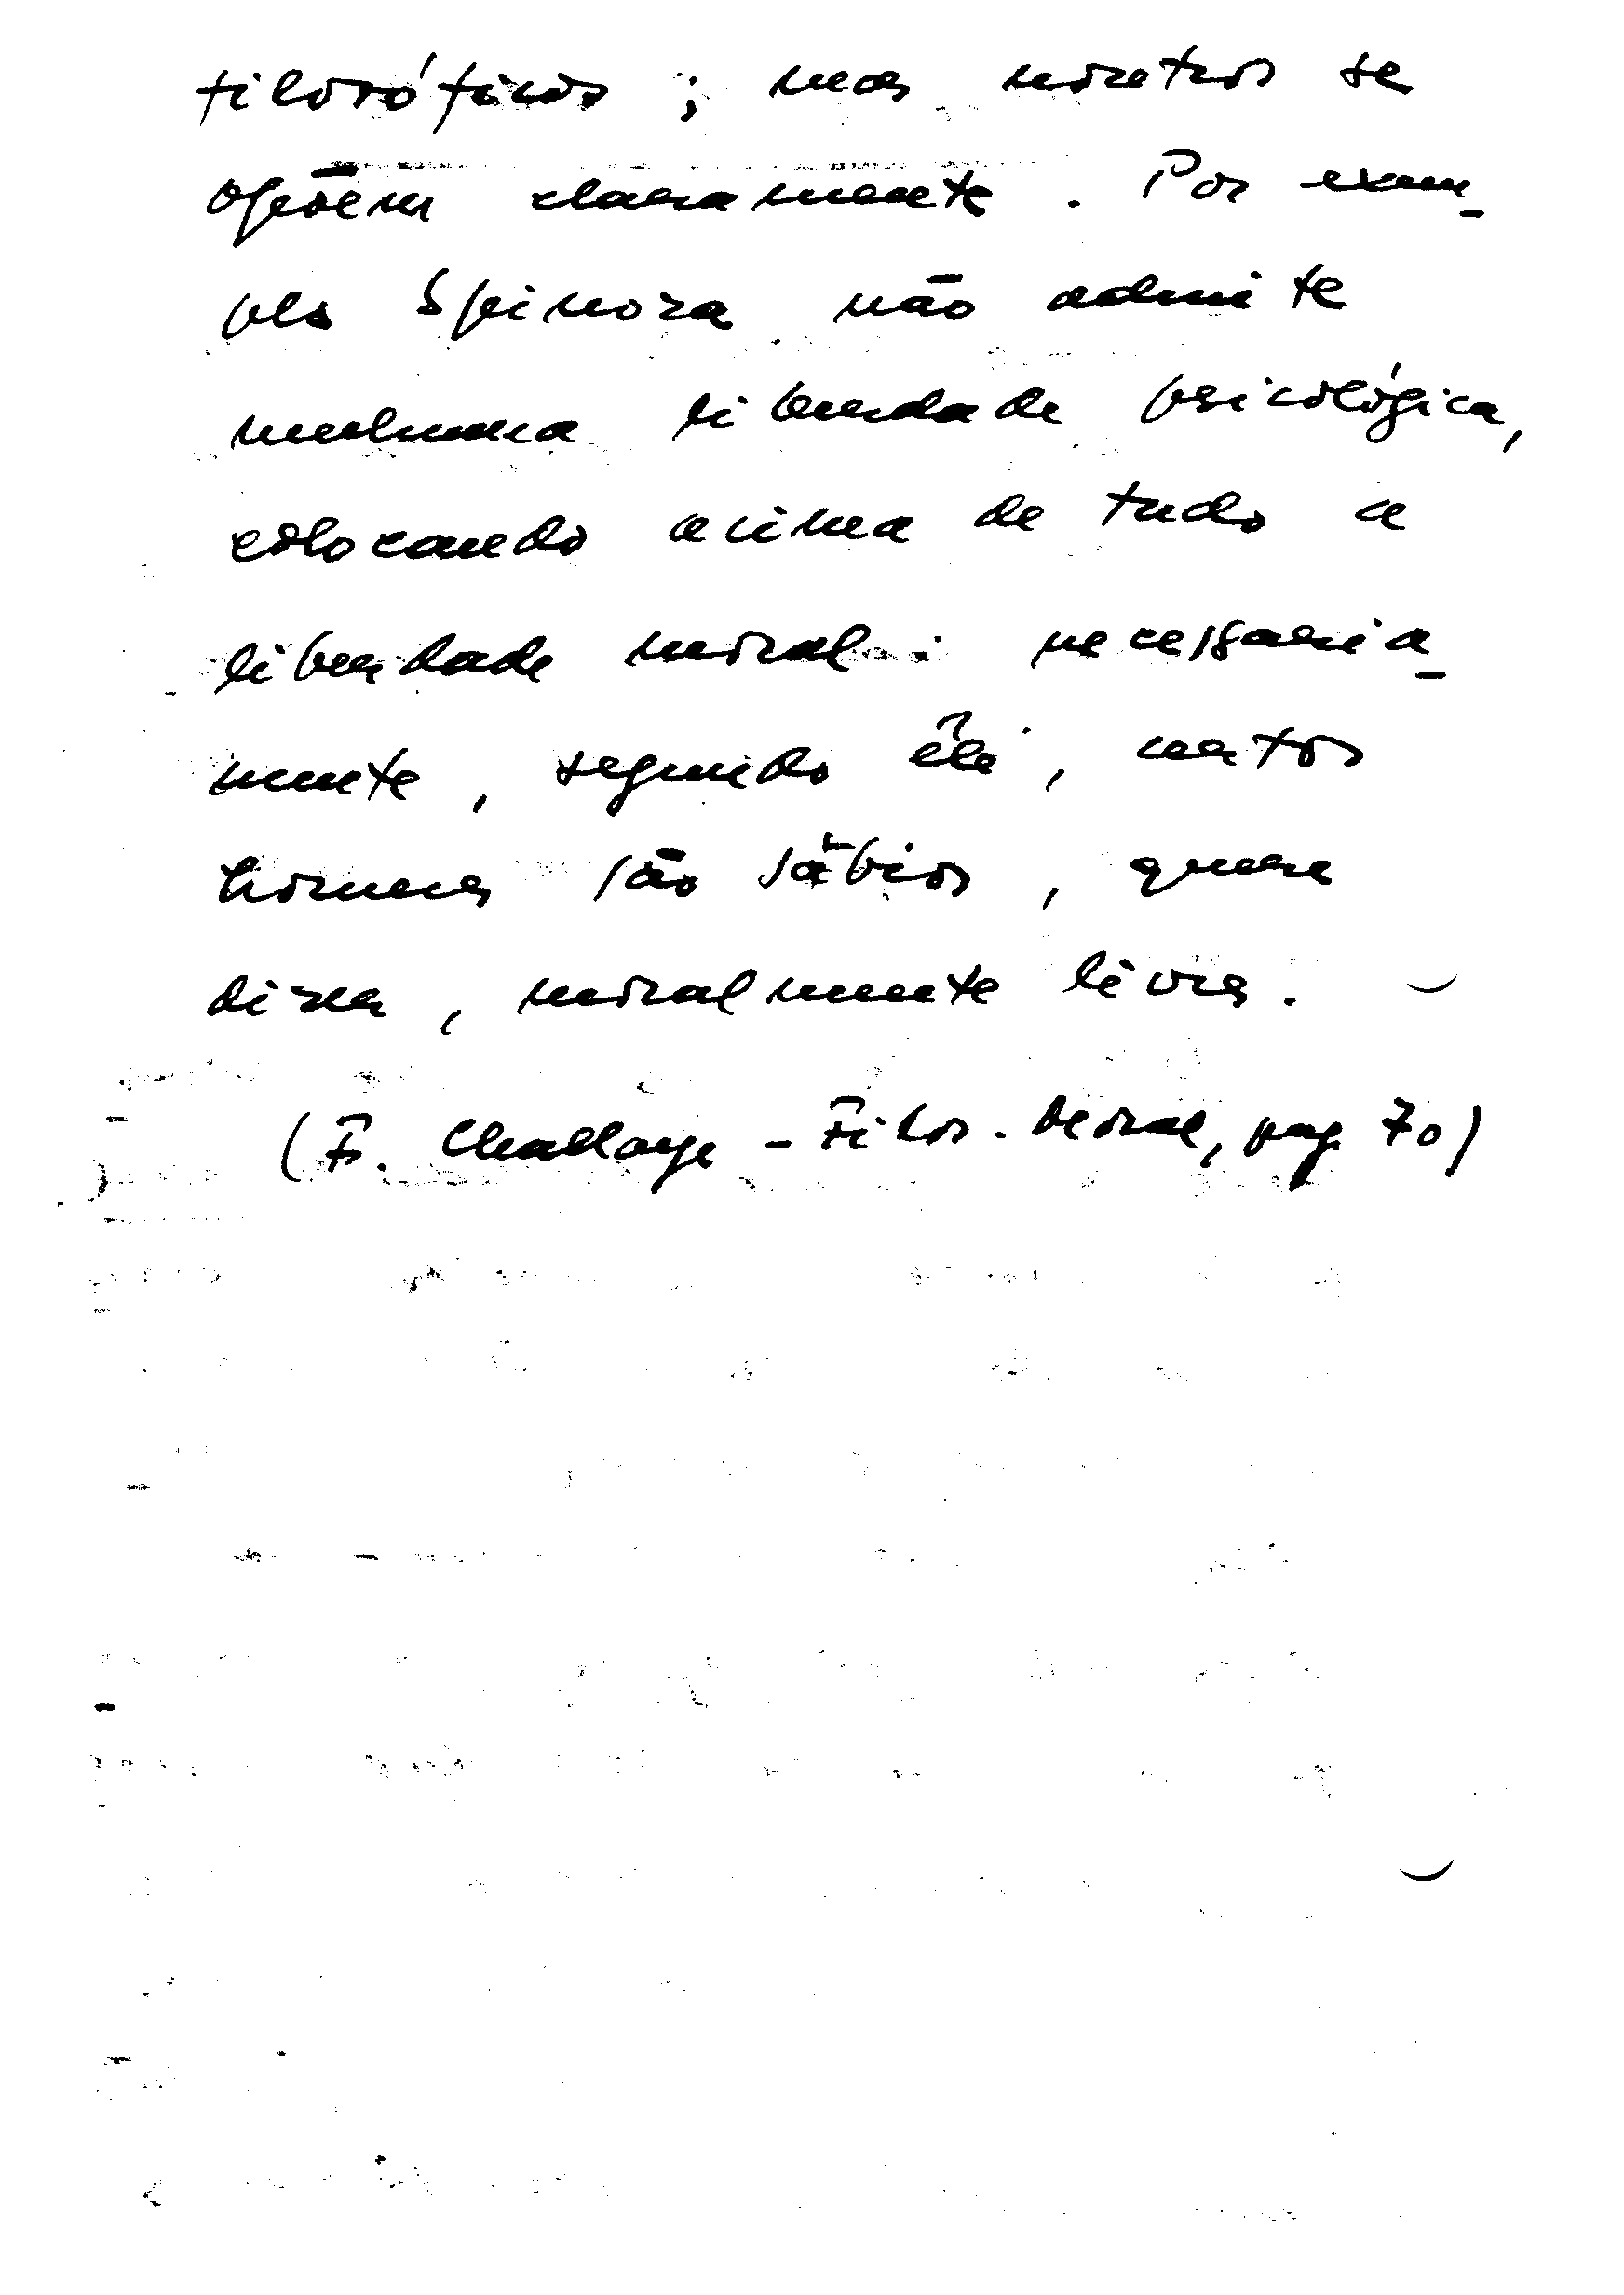 filosóficos ; mas noutros se
opõem claramente . Por exem-
plo Spinoza não admite
nenhuma liberdade psicológica,
colocando acima de tudo a
liberdade moral : necessaria-
mente , segundo êle , certos
homens são sábios , quere
dizer , moralmente livres .
(F. Challaye - Filos. Moral, pag 70)